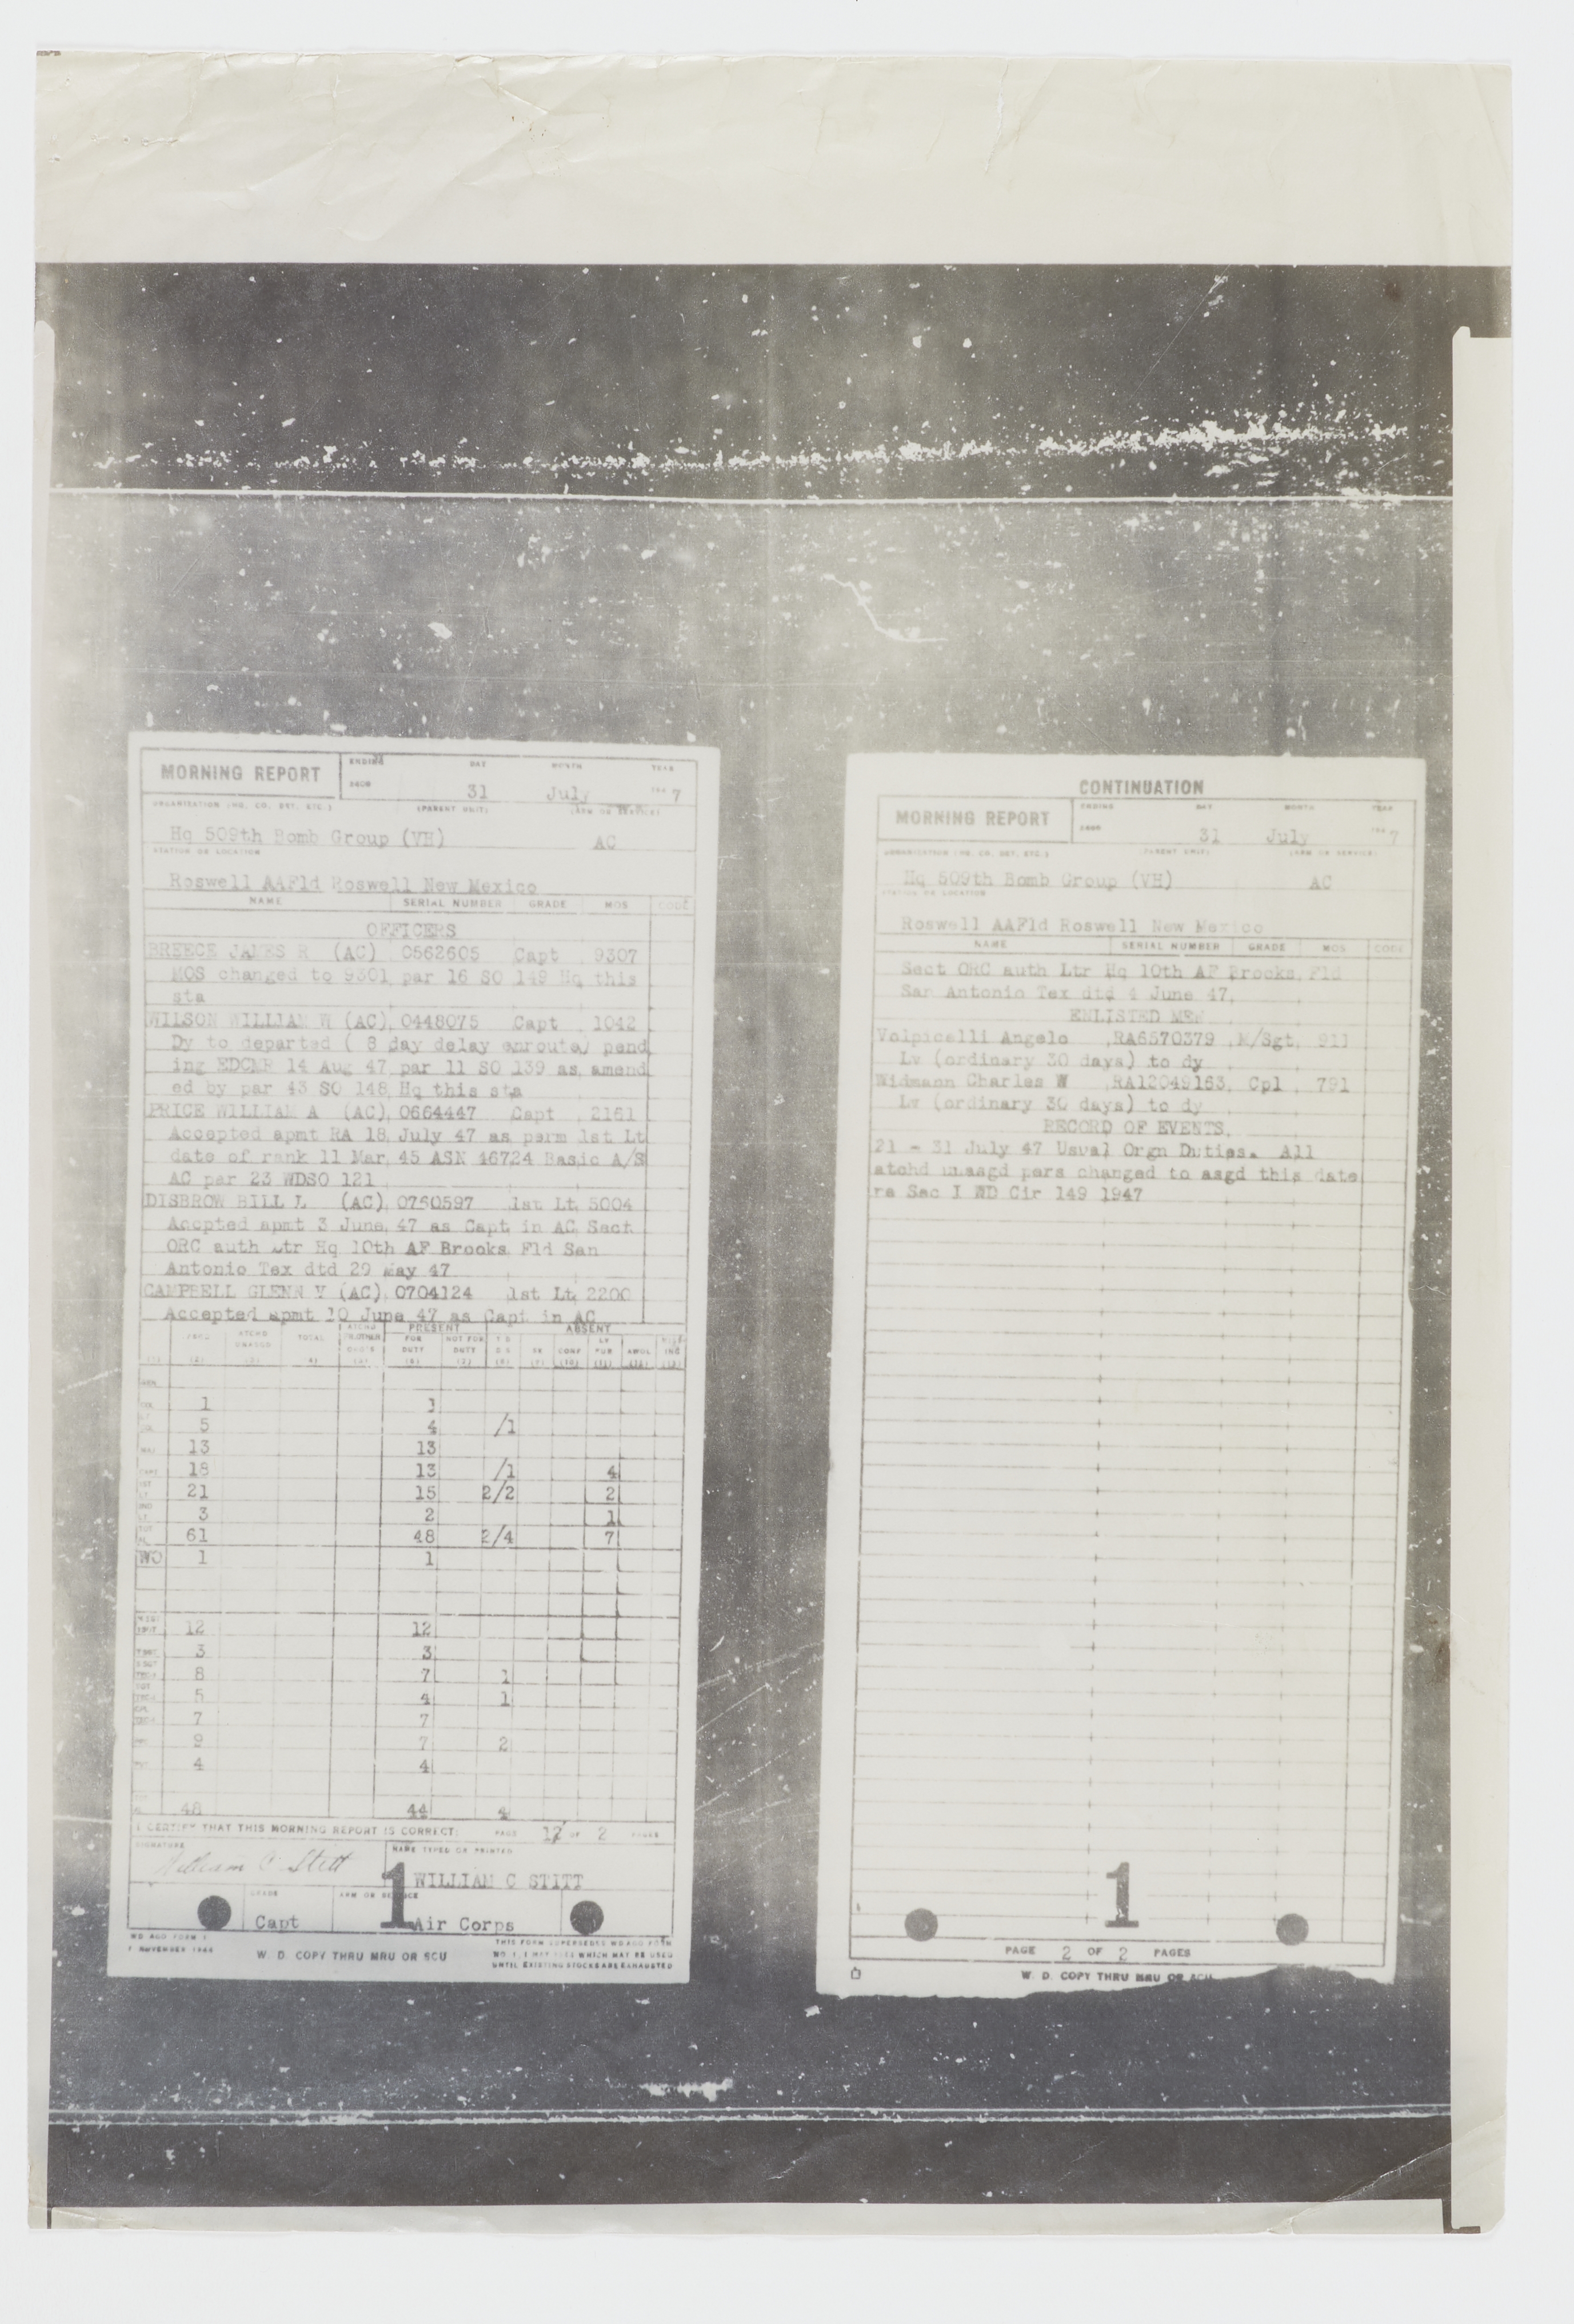 MORNING REPORT
ENDING DAY MONTH YEAR
2400 31 July 7
ORGANIZATION (HQ. CO. DET. ETC.) (PARENT UNIT) (ARM OR SERVICE)
Hq 509th Bomb Group (VH) AC
STATION OR LOCATION
Roswell AAFld Roswell New Mexico
NAME SERIAL NUMBER GRADE MOS CODE
OFFICERS
BREECE JAMES R (AC) 0562605 Capt 9307
MOS changed to 9301 par 16 SO 149 Hq this
sta
WILSON WILLIAM W (AC) 0448075 Capt 1042
Dy to departed ( 8 day delay enroute) pend
ing EDCMR 14 Aug 47 par 11 SO 139 as amend
ed by par 43 SO 148 Hq this sta
PRICE WILLIAM A (AC) 0664447 Capt 2161
Accepted apmt RA 18 July 47 as perm 1st Lt
date of rank 11 Mar 45 ASN 46724 Basic A/S
AC par 23 WDSO 121
DISBROW BILL L (AC) 0750597 1st Lt 5004
Accpted apmt 3 June 47 as Capt in AC Sect
ORC auth Ltr Hq 10th AF Brooks Fld San
Antonio Tex dtd 29 May 47
CAMPBELL GLENN V (AC) 0704124 1st Lt 2200
Accepted apmt 10 June 47 as Capt in AC
PRESENT ABSENT
ATCHD UNASGD TOTAL FOR DUTY NOT FOR DUTY SK CONF AWOL
1 1
5 4 /1
13 13
18 13 /1 4
21 15 2/2 2
3 2 1
61 48 2/4 7
WO 1 1
12 12
3 3
8 7 1
5 4 1
7 7
9 7 2
4 4
48 44 4
I CERTIFY THAT THIS MORNING REPORT IS CORRECT: PAGE 1 OF 2 PAGES
SIGNATURE NAME TYPED OR PRINTED
William C Stitt WILLIAM C STITT
1
GRADE ARM OR SERVICE
Capt Air Corps
WD AGO FORM 1
1 NOVEMBER 1944
W. D. COPY THRU MRU OR SCU
THIS FORM SUPERSEDES WD AGO FORM
NO. 1, 1 MAY WHICH MAY BE USED
UNTIL EXISTING STOCKS ARE EXHAUSTED
CONTINUATION
MORNING REPORT
ENDING DAY MONTH YEAR
2400 31 July 7
ORGANIZATION (HQ. CO. DET. ETC.) (PARENT UNIT) (ARM OR SERVICE)
Hq 509th Bomb Group (VH) AC
STATION OR LOCATION
Roswell AAFld Roswell New Mexico
NAME SERIAL NUMBER GRADE MOS CODE
Sect ORC auth Ltr Hq 10th AF Brooks Fld
San Antonio Tex dtd 4 June 47
ENLISTED MEN
Volpicelli Angelo RA6570379 M/Sgt 911
Lv (ordinary 30 days) to dy
Widmann Charles W RA12049163 Cpl 791
Lv (ordinary 30 days) to dy
RECORD OF EVENTS
21 - 31 July 47 Usual Orgn Duties. All
atchd unasgd pers changed to asgd this date
re Sec I WD Cir 149 1947
1
PAGE 2 OF 2 PAGES
W. D. COPY THRU MRU OR SCU